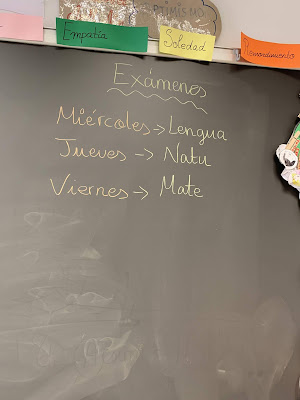 OPTIMISMO
Empatía
Soledad
Remordimiento
Exámenes
Miércoles → Lengua
Jueves → Natu
Viernes → Mate